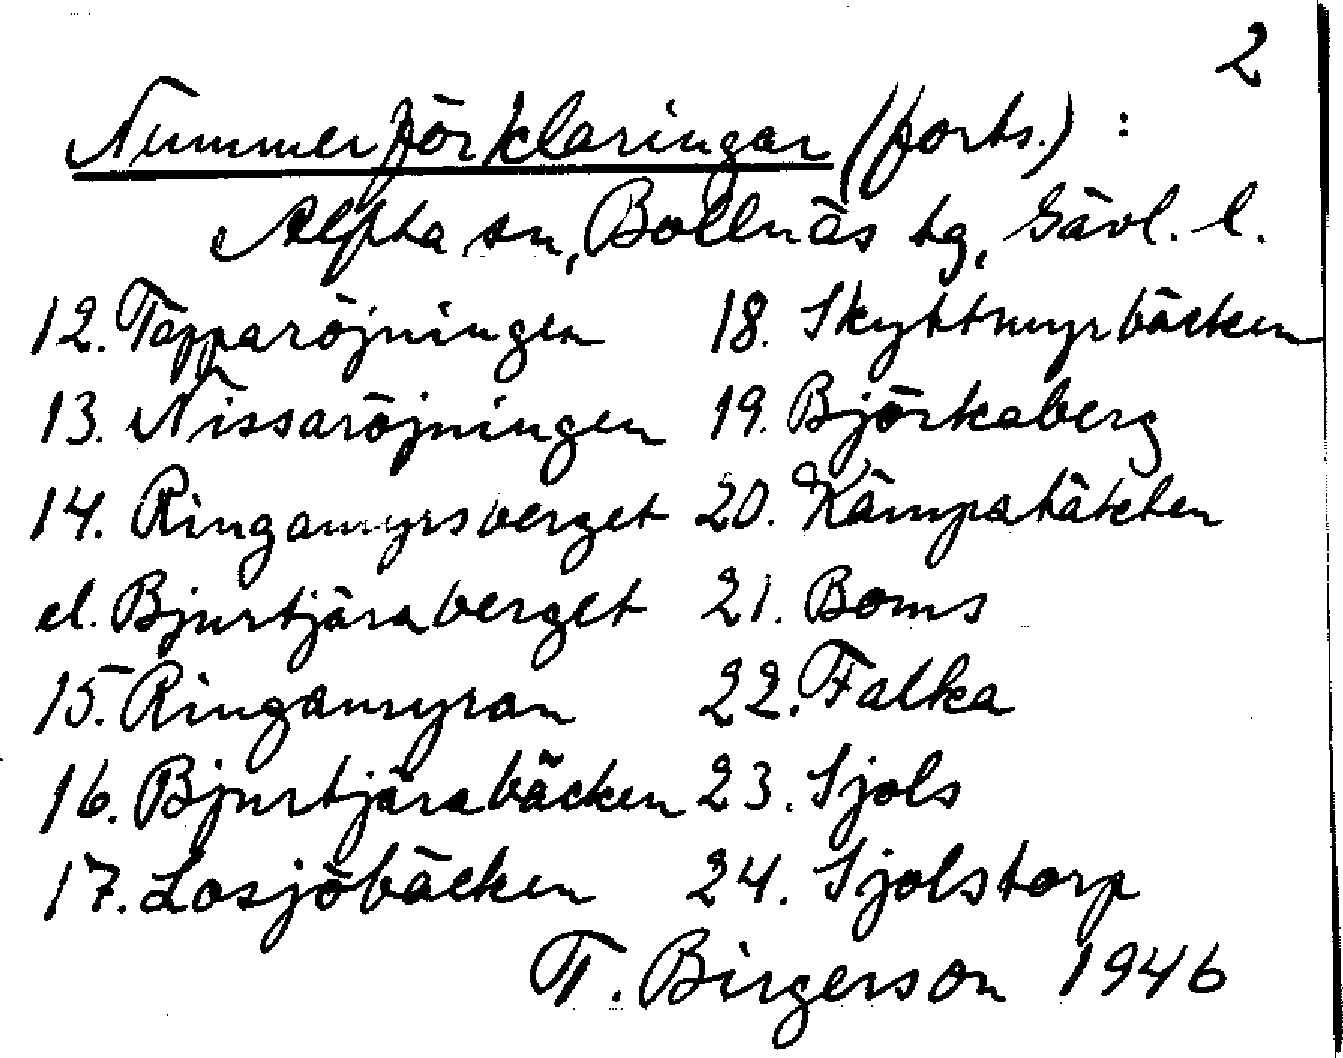 2
Nummerförklaringar (forts.) :
Alfta sn, Bollnäs tg, Gävl. l.
12. Tapparöjningen
13. Nissaröjningen
14. Ringamyrsberget
el. Bjurtjäraberget
15. Ringamyran
16. Bjurtjärabäcken
17. Losjöbäcken
18. Skyttmyrbäcken
19. Björkaberg
20. Kämpatäkten
21. Boms
22. Falka
23. Sjols
24. Sjolstorp
T. Birgerson 1946